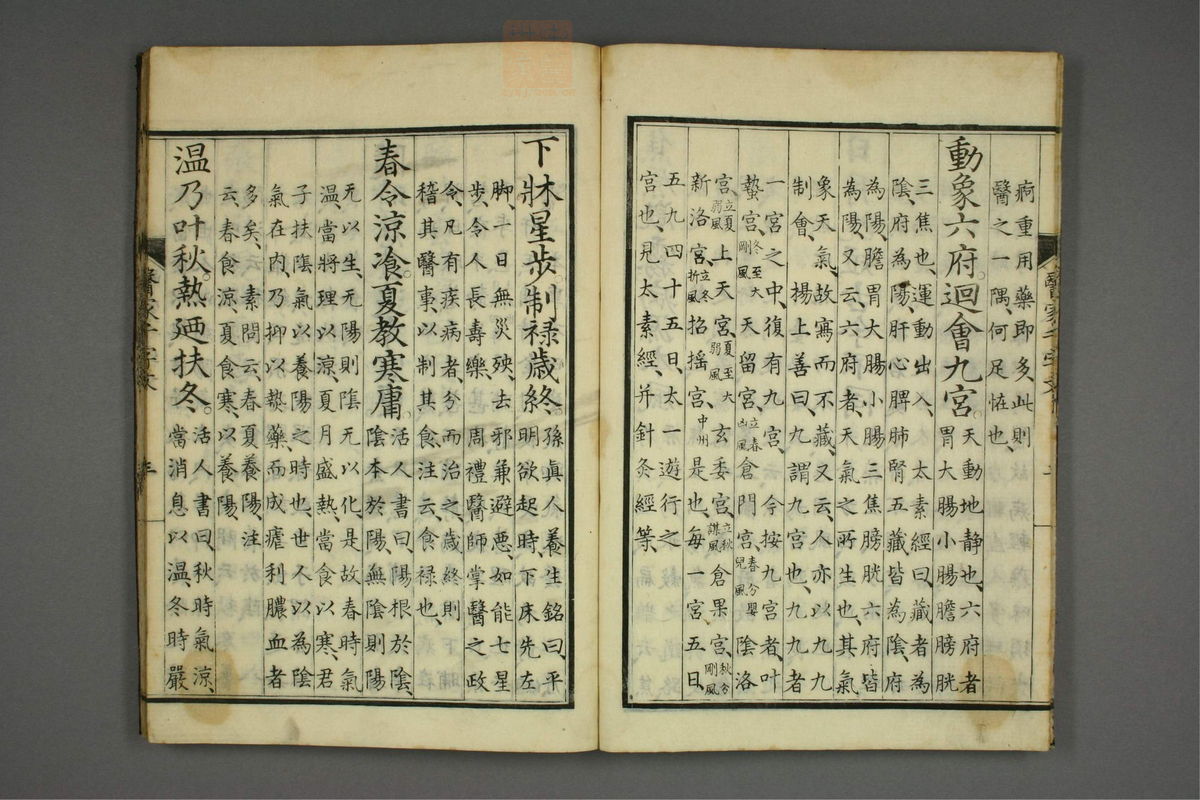 病重用藥即多此則
醫之一隅、何足怪也、
動象六府。迴會九宮。天動地静也、六府者
胃大腸小腸膽膀胱
三焦也、運動出入、太素經曰、藏者為
陰、府為陽、肝心脾肺腎五藏皆為陰、府
為陽、膽胃大腸小腸三焦膀胱六府皆
為陽、又云、六府者、天氣之所生也、其氣
象天氣、故寫而不藏、又云、人亦以九九
制會、楊上善曰、九謂九宮也、九九者
一宮之中、復有九宮、今按九宮者、叶
蟄宮、冬至大剛風天留宮、立春凶風倉門宮、春分嬰兒風陰洛
宮、立夏弱風上天宮、夏至大弱風玄委宮、立秋謀風倉果宮、秋分剛風
新洛宮、立冬折風招揺宮、中州是也、毎一宮、五日、
五九四十五日、太一遊行之
宮也、見太素經、并針灸經等、
下牀星歩。制禄歳終。孫眞人養生銘曰、平
明欲起時、下床先左
脚、一日無災殃、去邪兼避悪、如能七星
歩、令人長壽樂、周禮醫師掌醫之政
令、凡有疾病者、分而治之、歳終則
稽其醫事、以制其食注云、食禄也、
春令涼飡。夏教寒庸。活人書曰、陽根於陰、
陰本於陽、無陰則陽
无以生、无陽則陰无以化、是故春時氣
温、當將理以涼、夏月盛熱、當食以寒、君
子扶陰氣以養陽之時也、世人以為陰
氣在内、乃抑以熱藥而成瘧利膿血者
多矣、素問云、春夏養陽、注
云、春食涼、夏食寒、以養陽、
温乃叶秋。熱廼扶冬。活人書曰、秋時氣涼、
當消息以温、冬時嚴
醫家千字文